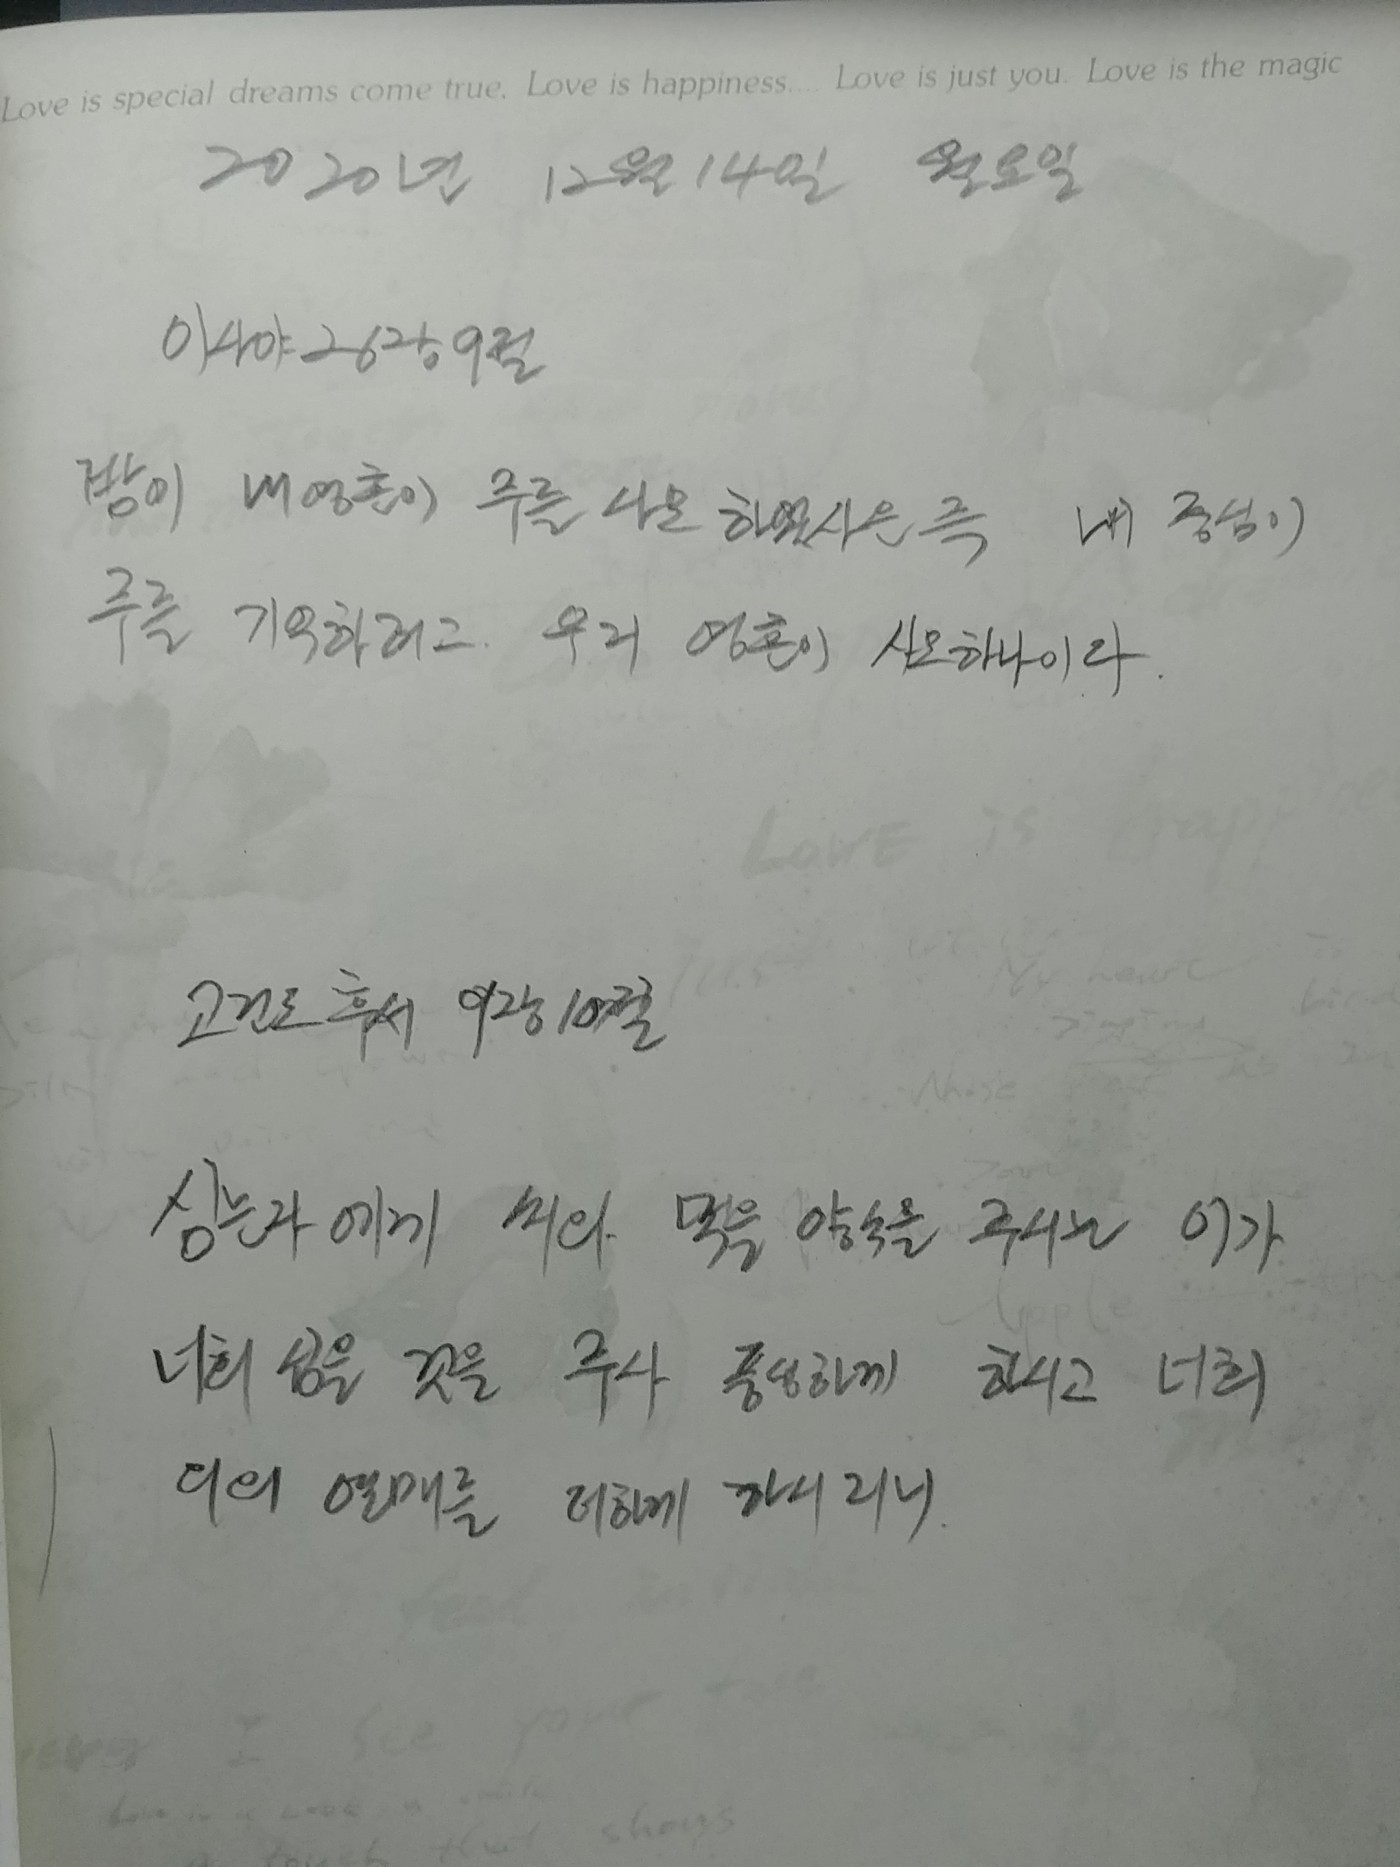 Love is special dreams come true. Love is happiness.... Love is just you. Love is the magic
2020년 12월 14일 월요일
이사야 26장 9절
밤이 내 영혼이 주를 사모 하였사은즉 내 중심이
주를 기억하려고 우리 영혼이 사모하나이다.
LOVE is
My heart
고린도후서 9장 10절
심는자에게 씨와 먹을 양속을 주시는 이가
Apple
너희 심을 것을 주사 풍성하게 하시고 너희
의의 열매를 더하게 하시리니.
feel
I see your face
touch that shows